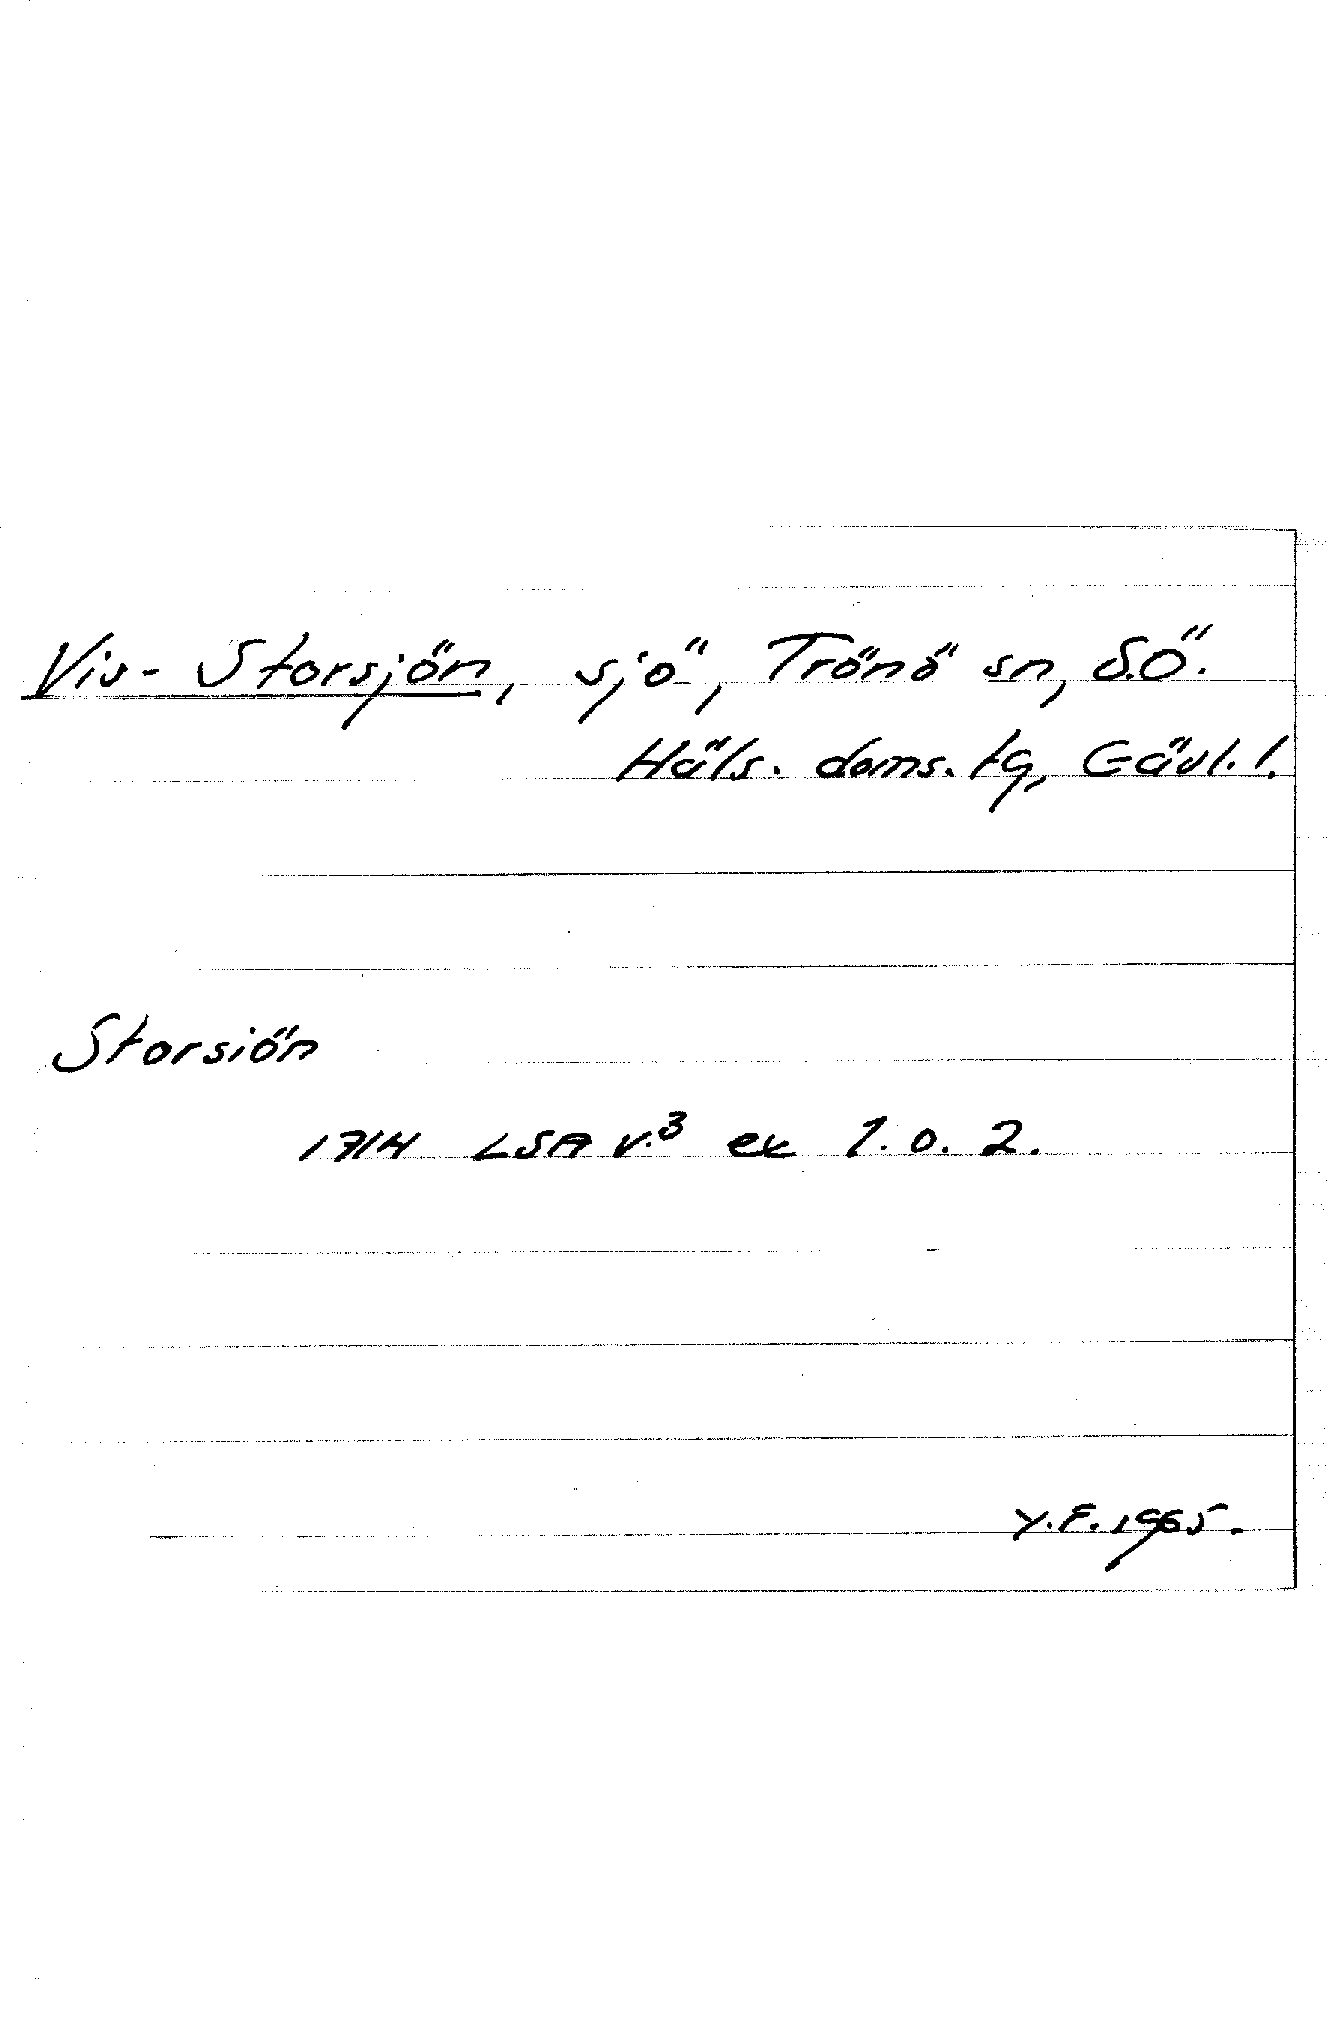 Vis-Storsjön, sjö, Trönö sn, S.Ö.
Häls. doms. tg, Gävl. l.
Storsiön
1714 LSA v.3 ex 1. o. 2.
Y.F. 1965.